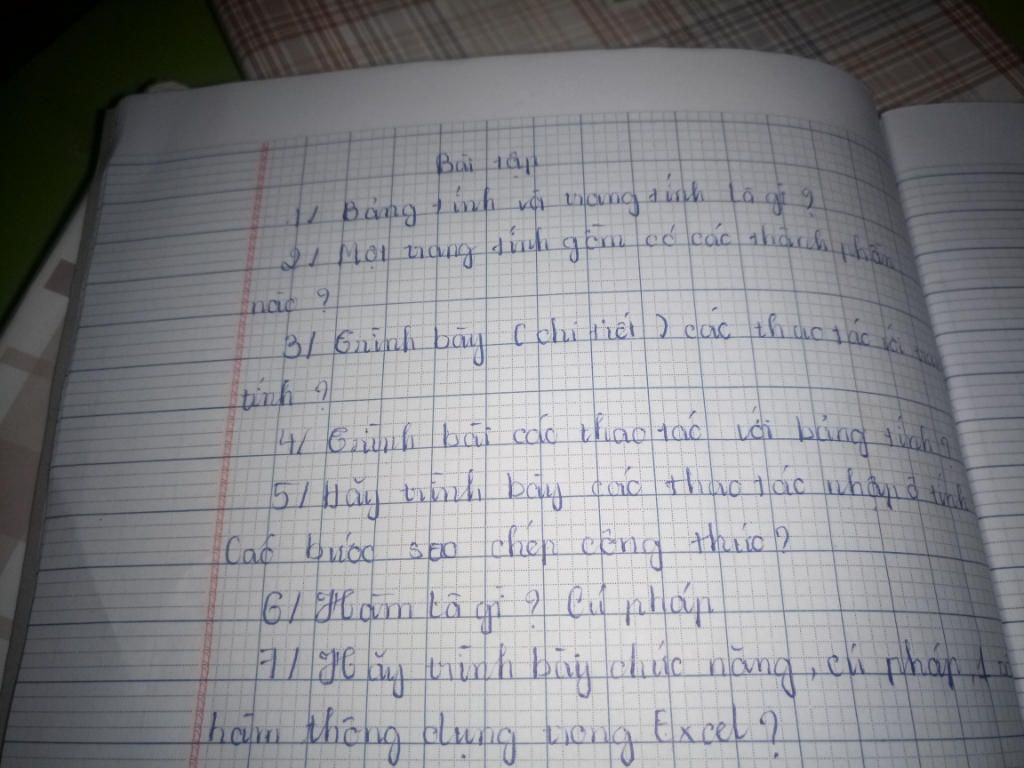 Bài tập
1/ Bảng tính và trang tính là gì ?
2/ Mọi trang tính gồm có các thành phần
nào ?
3/ Trình bày (chi tiết) các thao tác
tính ?
4/ Trình bài các thao tác với bảng tính ?
5/ Hãy trình bày các thao tác nhập ô tính
Các bước sao chép công thức ?
6/ Hàm là gì ? Cú pháp
7/ Hãy trình bày chức năng, cú pháp,
hàm thông dụng trong Excel ?